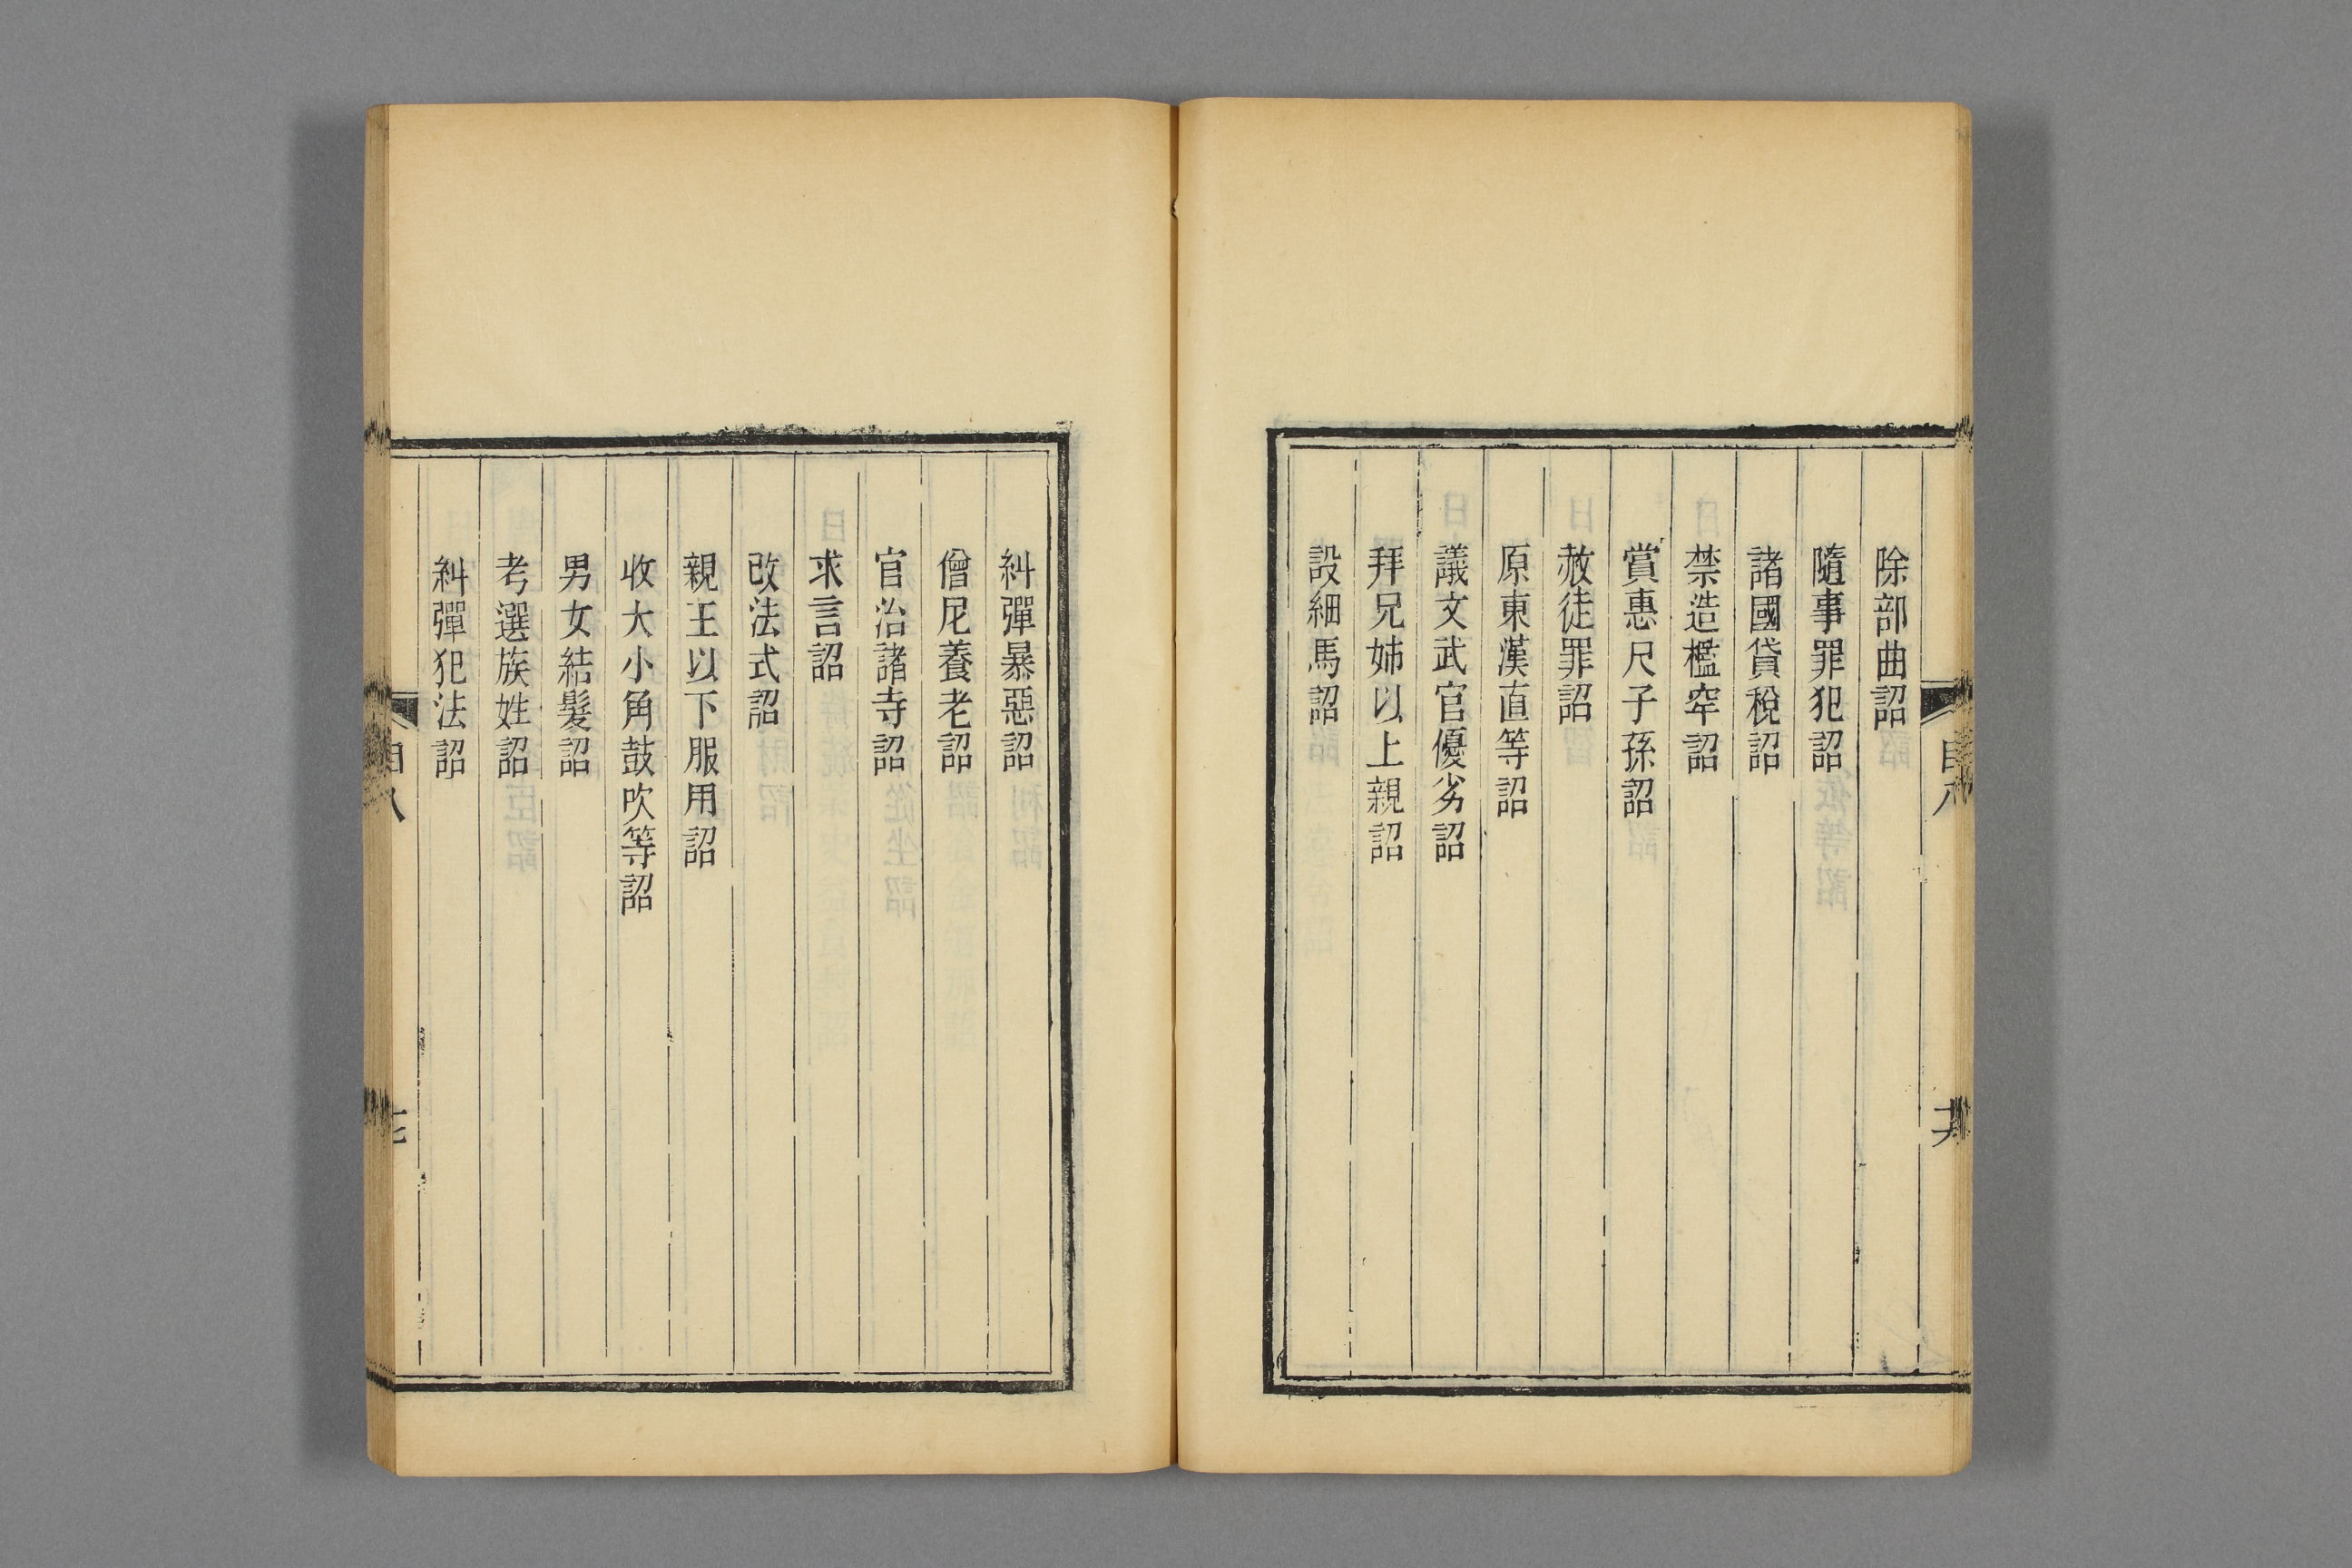 除部曲詔
隨事罪犯詔
諸國貸稅詔
禁造檻穽詔
賞惠尺子孫詔
赦徒罪詔
原東漢直等詔
議文武官優劣詔
拜兄姊以上親詔
設細馬詔
糾彈暴惡詔
僧尼養老詔
官治諸寺詔
求言詔
改法式詔
親王以下服用詔
收大小角鼓吹等詔
男女結髮詔
考選族姓詔
糾彈犯法詔